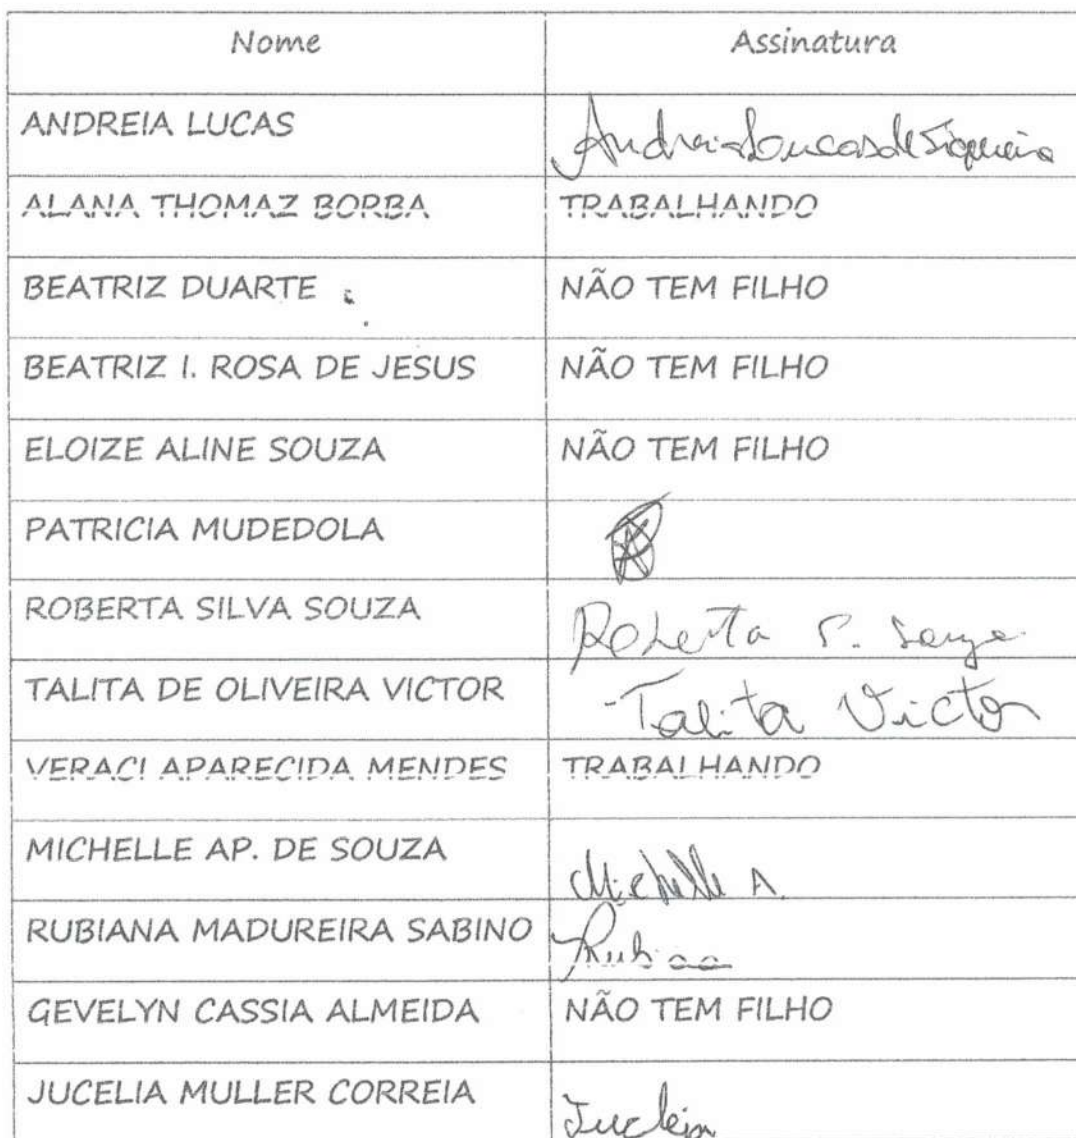 Nome Assinatura
ANDREIA LUCAS Andreia Loucas de Siqueira
ALANA THOMAZ BORBA TRABALHANDO
BEATRIZ DUARTE NÃO TEM FILHO
BEATRIZ I. ROSA DE JESUS NÃO TEM FILHO
ELOIZE ALINE SOUZA NÃO TEM FILHO
PATRICIA MUDEDOLA
ROBERTA SILVA SOUZA Roberta S. Souza
TALITA DE OLIVEIRA VICTOR Talita Victor
VERACI APARECIDA MENDES TRABALHANDO
MICHELLE AP. DE SOUZA Michelle A.
RUBIANA MADUREIRA SABINO
GEVELYN CASSIA ALMEIDA NÃO TEM FILHO
JUCELIA MULLER CORREIA